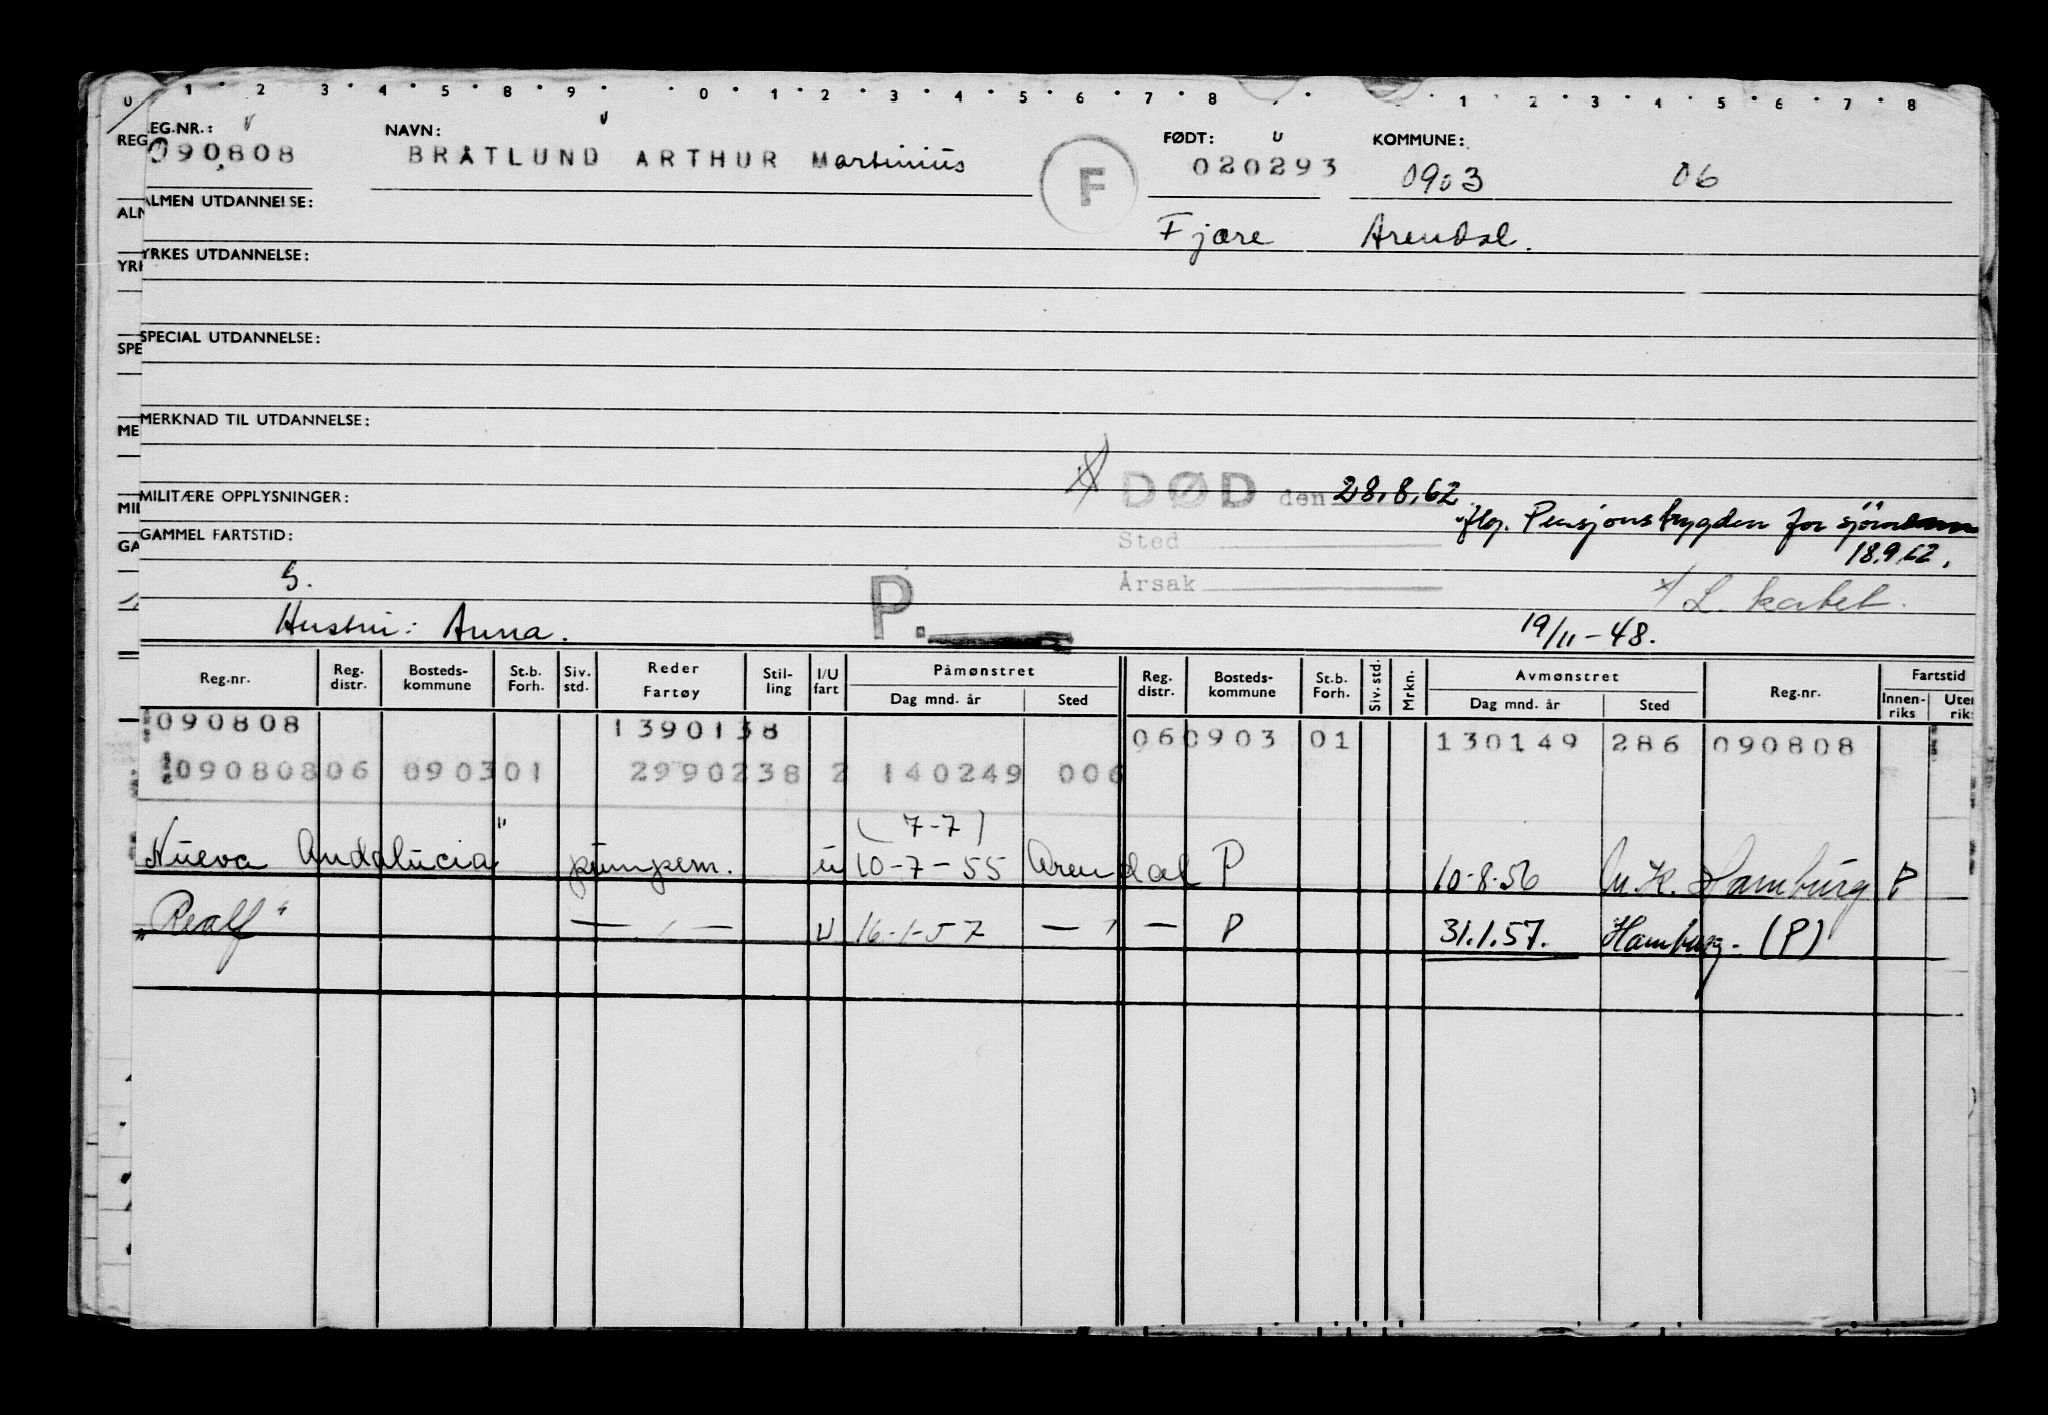 U 1 2 3 4 5 8 9 0 1 2 3 4 5 6 7 8 1 2 3 4 5 6 7 8
REG EG.NR.: NAVN: FØDT: KOMMUNE:
090808 BRÅTLUND ARTHUR Martinius F 020293 0903 06
ALN ALMEN UTDANNELSE:
Fjære Arendal.
YRK YRKES UTDANNELSE:
SPE SPECIAL UTDANNELSE:
ME MERKNAD TIL UTDANNELSE:
MIL MILITÆRE OPPLYSNINGER: x/ DØD den 28.8.62
iflg. Pensjonstrygden for sjömenn
GA GAMMEL FARTSTID: Sted 18.9.62.
S. P. Årsak x/ L. kartet.
Hustru: Anna. 19/11-48.
Reg.nr. Reg. distr. Bosteds-kommune St.b. Forh. Siv. std. Reder Fartøy Stil-ling I/U fart Påmønstret Dag mnd. år Sted Reg. distr. Bosteds-kommune St.b. Forh. Siv. std. Mrkn. Avmønstret Dag mnd. år Sted Reg.nr. Fartstid Innen-riks Uten riks
090808 1390138 060903 01 130149 286 090808
090808 06 0903 01 2990238 2 140249 006
(7-7)
Nueva Andalucia" pumpem. u 10-7-55 Arendal P 10-8-56 M.K. Hamburg P
"Realf" — " — U 16-1-57 — " — P 31.1.57. Hamburg. (P)